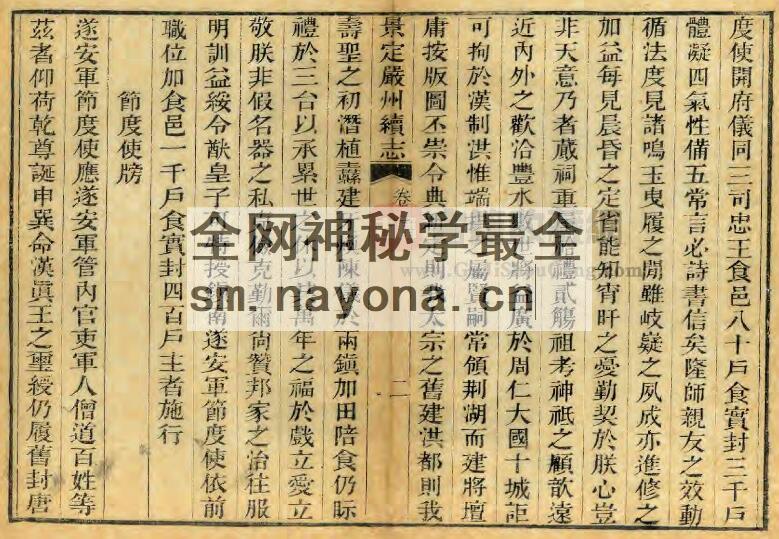 度使開府儀同三司忠王食邑八十戶食實封三千戶
體凝四氣性備五常言必詩書信矣隆師親友之效動
循法度見諸鳴玉曳履之閒雖岐嶷之夙成亦進修之
加益每見晨昏之定省能知宵旰之憂勤契於朕心豈
非天意乃者蕆祠重 禮貳觴祖考神祇之顧歆遠
近內外之歡洽豐水 世將益廣於周仁大國十城詎
可拘於漢制洪惟端 屬賢嗣常領荆湖而建將壇
庸按版圖丕崇令典 則我太宗之舊建洪都則我
景定嚴州續志 卷 二
壽聖之初潛植纛建 陳 於兩鎭加田陪食仍眎
禮於三台以承累世之 以 萬年之福於戲立愛立
敬朕非假名器之私 克勤爾尙贊邦家之治往服
明訓益綏令猷皇子 授 南遂安軍節度使依前
職位加食邑一千戶食實封四百戶主者施行
節度使牓
遂安軍節度使應遂安軍管內官吏軍人僧道百姓等
茲者仰荷乾尊誕申巽命漢眞王之璽綬仍履舊封唐
全网神秘学最全
sm.nayona.cn